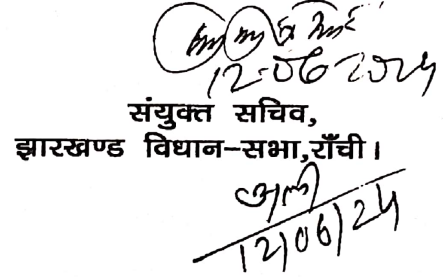 12-06-2024
संयुक्त सचिव,
झारखण्ड विधान-सभा,राँची।
अली
12/06/24